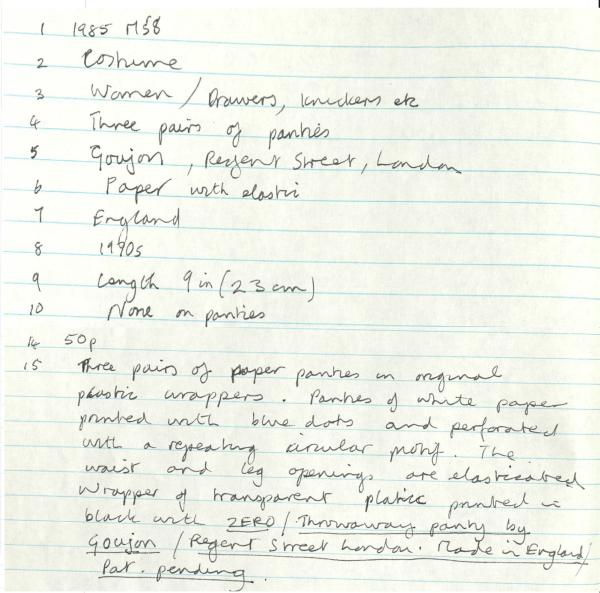 1 1985 M58
2 Costume
3 Women / Drawers, knickers etc
4 Three pairs of panties
5 Goujon, Regent Street, London
6 Paper with elastic
7 England
8 1990s
9 Length 9 in (23 cm)
10 None on panties
14 50p
15 Three pairs of paper panties in original
plastic wrappers. Panties of white paper
printed with blue dots and perforated
with a repeating circular motif. The
waist and leg openings are elasticated
Wrapper of transparent platic printed in
black with ZERO / Throwaway panty by
Goujon / Regent Street London. Made in England/
Pat. pending.